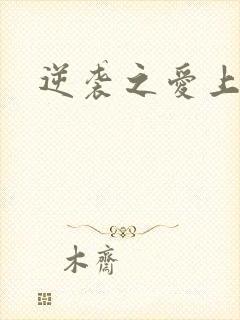 逆袭之爱上
木齋